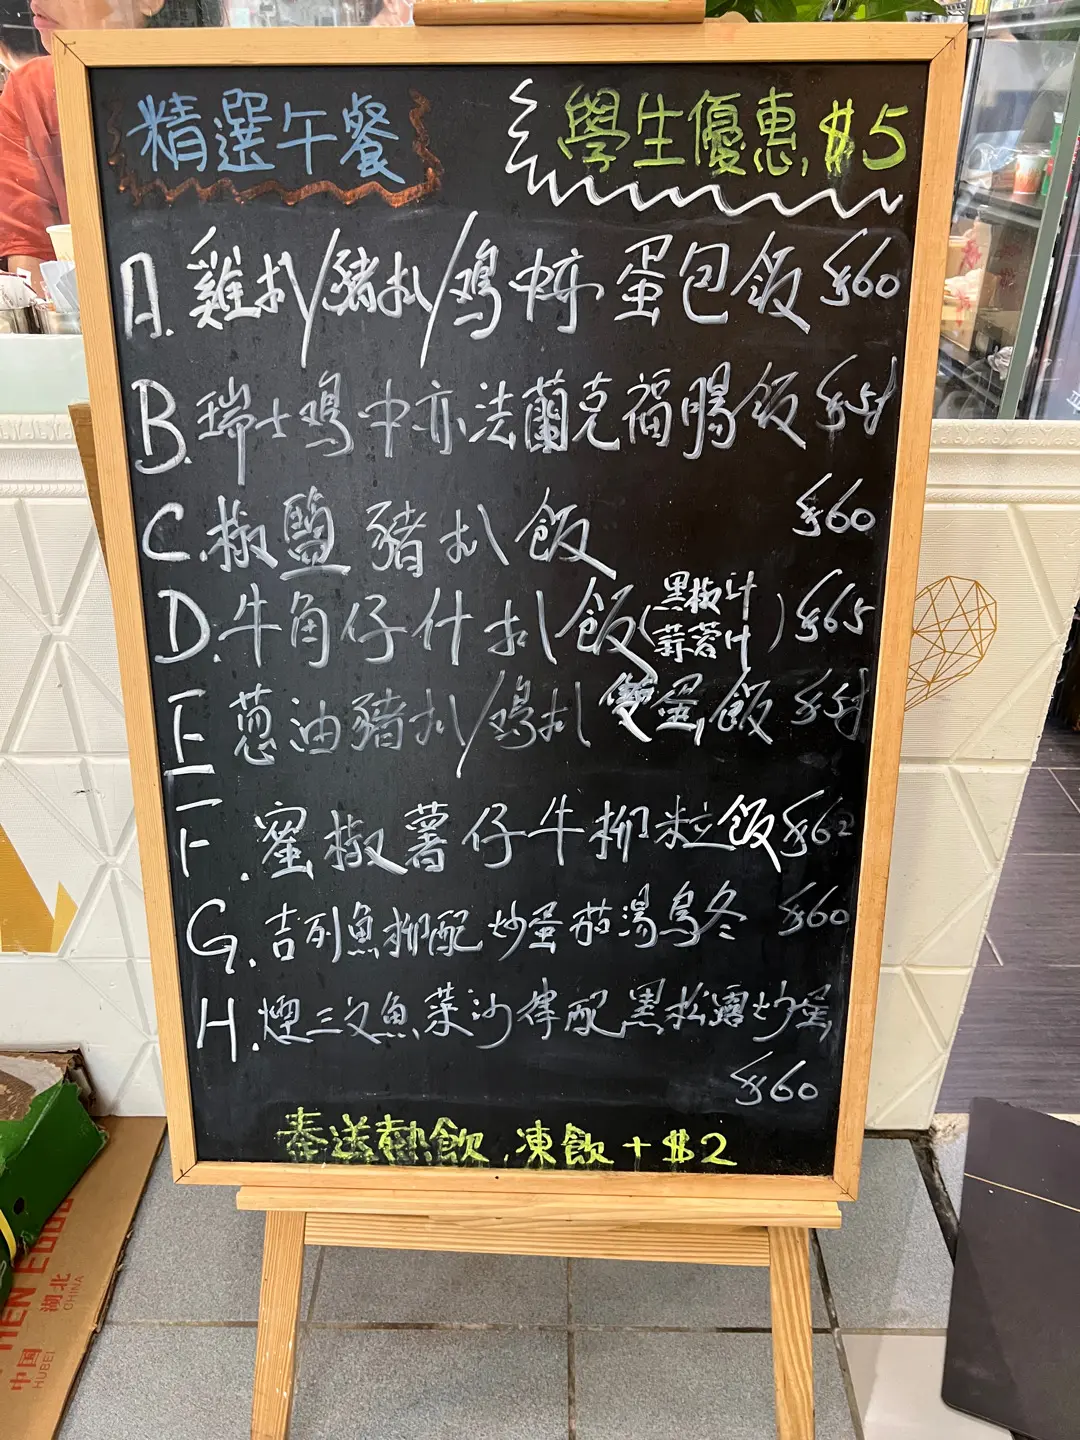 精選午餐
學生優惠, $5
A. 雞扒/豬扒/鸡中亦 蛋包飯 $60
B. 瑞士鸡中亦法蘭克福腸飯 $58
C. 椒鹽豬扒飯 $60
D. 牛角仔什扒飯(黑椒汁 蒜蓉汁) $65
E 葱油豬扒/鸡扒 雙蛋飯 $58
F. 蜜椒薯仔牛柳粒飯 $62
G. 吉列魚柳配炒蛋茄湯烏冬 $60
H. 煙三文魚菜沙律配黑松露炒蛋
$60
奉送熱飲, 凍飲+$2
中国
湖北
HUBEI
CHINA